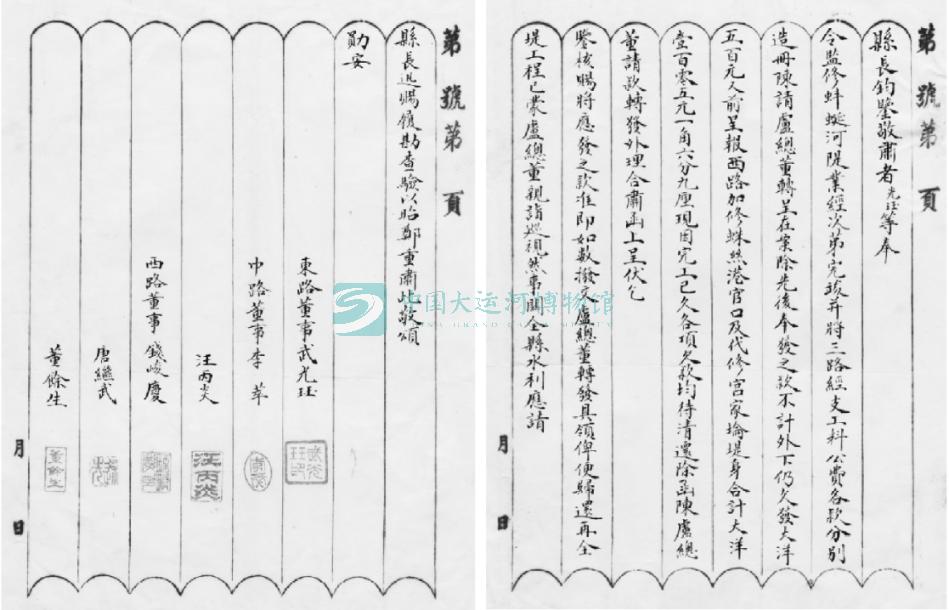 第 號第 頁
縣長鈞鑒敬肅者光珏等奉
令監修蚌蜒河隄業經次第完竣并將三路經支工料公費各款分別
造冊陳請盧總董轉呈在案除先後奉發之款不計外下仍欠發大洋
五百元又前呈報西路加修蛛絲港官口及代修宫家埨堤身合計大洋
壹百零五元一角六分九厘現因完工已久各項欠款均待清還除函陳盧總
董請款轉發外理合肅函上呈伏乞
鑒核賜將應發之款准即如數撥交盧總董轉發具領俾便歸還再全
堤工程已蒙盧總董親詣巡視然事關全縣水利應請
月 日
第 號第 頁
縣長迅賜履勘查驗以昭鄭重肅此敬頌
勛安
東路董事武光珏
中路董事李 苹
汪丙炎
西路董事錢峻慶
唐繼武
董餘生
汪丙炎
董餘生
月 日
中国大运河博物馆
CHINA GRAND CANAL MUSEUM